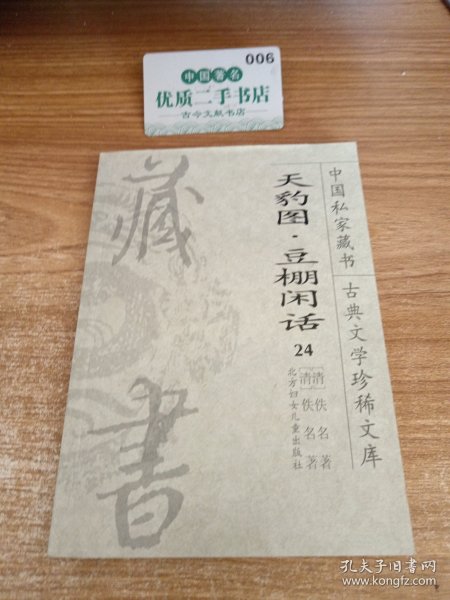 006
中国著名
优质二手书店
古今文献书店
中国私家藏书
古典文学珍稀文库
天豹图·豆棚闲话
24
[清]佚名著
[清]佚名著
北方妇女儿童出版社
藏書
孔夫子旧书网
www.kongfz.com